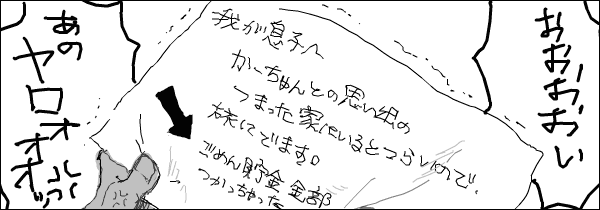 おおおおい
我が息子へ
かーちゃんとの思い出の
つまった家にいるとつらいので、
旅にでます。
ごめん貯金全部
つかっちゃった
あの
ヤロオオオ